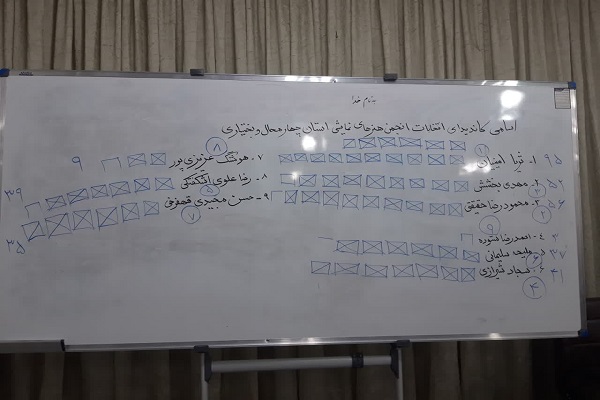 بنام خدا
اسامی کاندیدای انتخابات انجمن هنرهای نمایشی استان چهارمحال و بختیاری
۱. ثریا امینیان ۹۵
۲. مهدی بخشش ۵۲
۳. محمودرضا حقیقی ۵۶
۴. احمدرضا ستوده ۳
۵. ملیحه سلیمانی ۳۷
۶. سجاد شیرازی ۴۱
۴
۷. هوشنگ عزیزی پور ۹
۸
۸. رضا علوی ۳۹
۹. حسن مجیدی قهفرخی ۳۵
۷